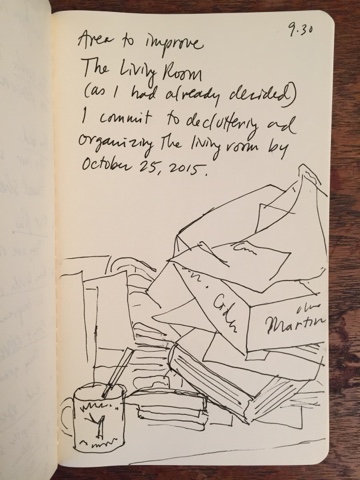 9.30
Area to improve
The Living Room
(as I had already decided)
I commit to decluttering and
organizing The living room by
October 25, 2015.
Martin